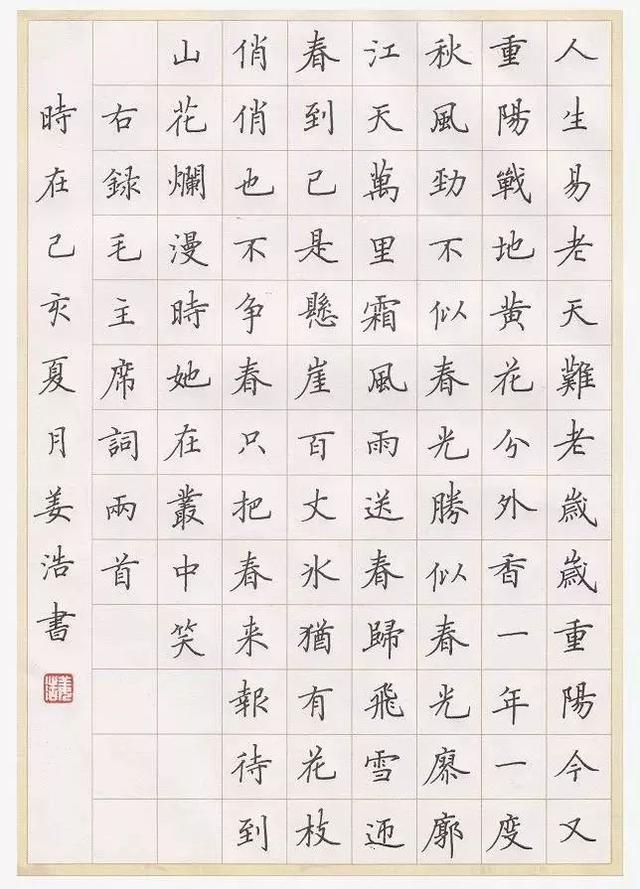 人生易老天難老歲歲重陽今又
重陽戰地黃花分外香一年一度
秋風勁不似春光勝似春光廖廓
江天萬里霜風雨送春歸飛雪迎
春到已是懸崖百丈冰猶有花枝
俏俏也不争春只把春来報待到
山花爛漫時她在叢中笑
右録毛主席詞兩首
時在己亥夏月姜浩書
姜浩